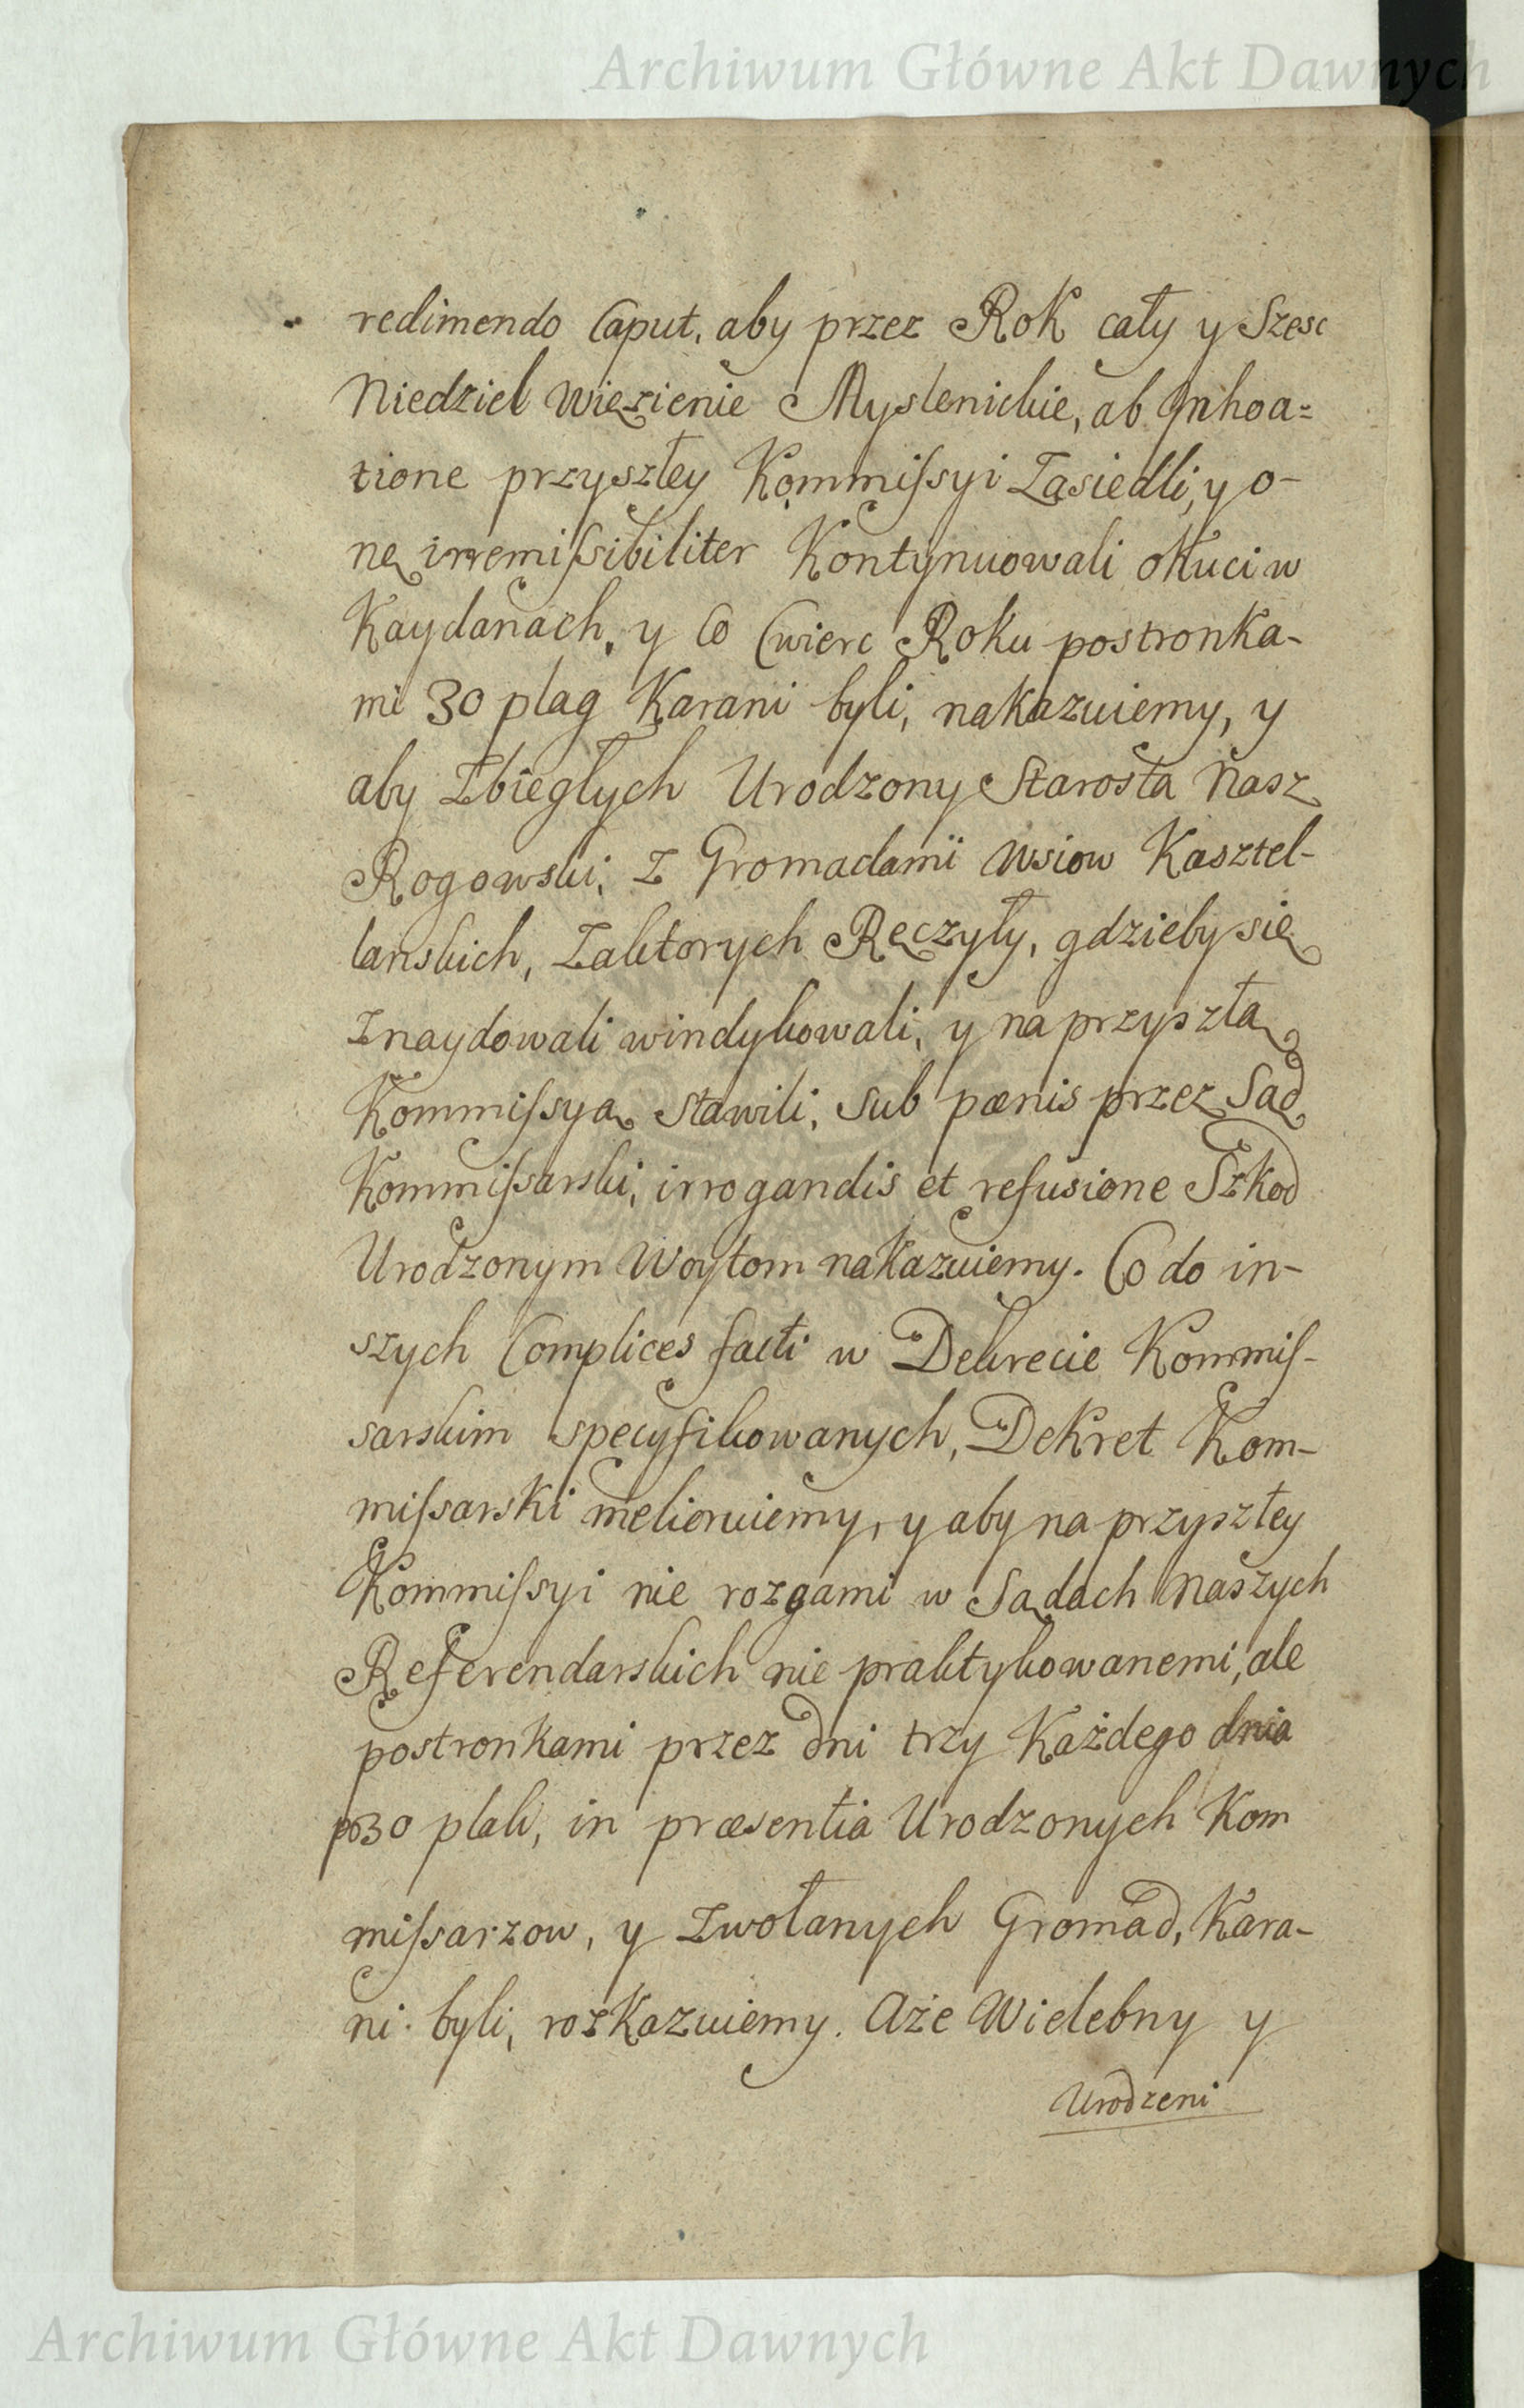 Archiwum Główne Akt Dawnych
redimendo Caput, aby przez Rok cały y Szesc
Niedziel Więzienie Myslenickie, ab Inhoa=
tione przyszłey Kommissyi Zasiedli, y o-
ne irremissibiliter Kontynuowali okuci w
Kaydanach, y Co Cwierc Roku postronka-
mi 30 plag Karani byli, nakazuiemy, y
aby Zbiegłych Urodzony Starosta Nasz
Rogowski, z Gromadami Wsiow Kasztel-
lanskich, Zaktorych Ręczyły, gdzieby się
znaydowali windykowali, y na przyszłą
Kommissyą stawili, sub pœnis przez Sąd
Kommissarski, irrogandis et refusione Szkod
Urodzonym Woytom nakazuiemy. Co do in-
szych Complices facti w Dekrecie Kommis-
sarskim specyfikowanych, Dekret Kom-
missarski melioruiemy, y aby na przyszłey
Kommissyi nie rozgami w Sądach Naszych
Referendarskich nie praktykowanemi, ale
postronkami przez dni trzy Każdego dnia
po 30 plak, in præsentia Urodzonych Kom
missarzow, y zwołanych Gromad, Kara-
ni byli, rozkazuiemy. Aże Wielebny y
Urodzeni
Archiwum Główne Akt Dawnych